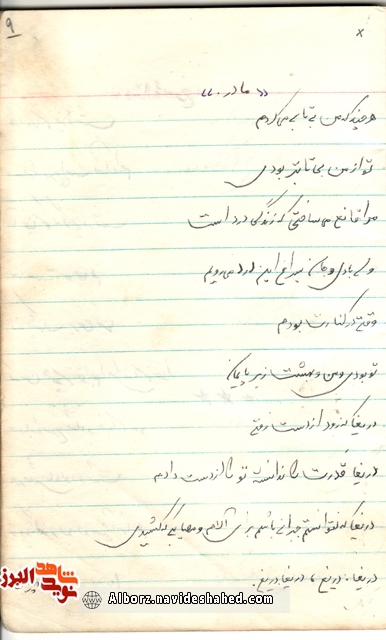 ۹
x
« مادر »
هر چند که من بی تابی می کردم
تو از من بی تابتر بودی
مرا قانع می ساختی که زندگی درد است
ولی با دل و جان سراغ این درد می رویم
وقتی در کنارت بودم
تو بودی و من و بهشت زیر پایمان
دریغا که زود از دست رفتی
دریغا قدرت را ندانسته تو را از دست دادم
دریغا که نتوانستم جبرانی باشم برای آلام و مصایبی که کشیدی
دریغا، دریغ، دریغا دریغ.
شاهد
نوید
البرز
Alborz.navideshahed.com